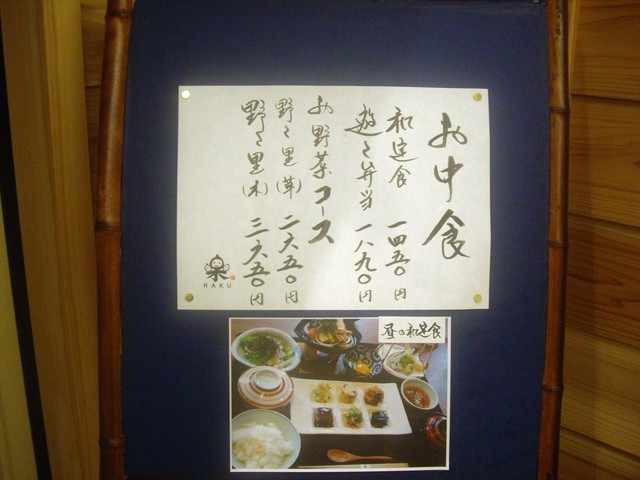 お中食
和定食 一四五〇円
遊々弁当 一八九〇円
お野菜コース
野々里(草) 二六五〇円
野々里(木) 三六五〇円
楽
RAKU
昼の和定食